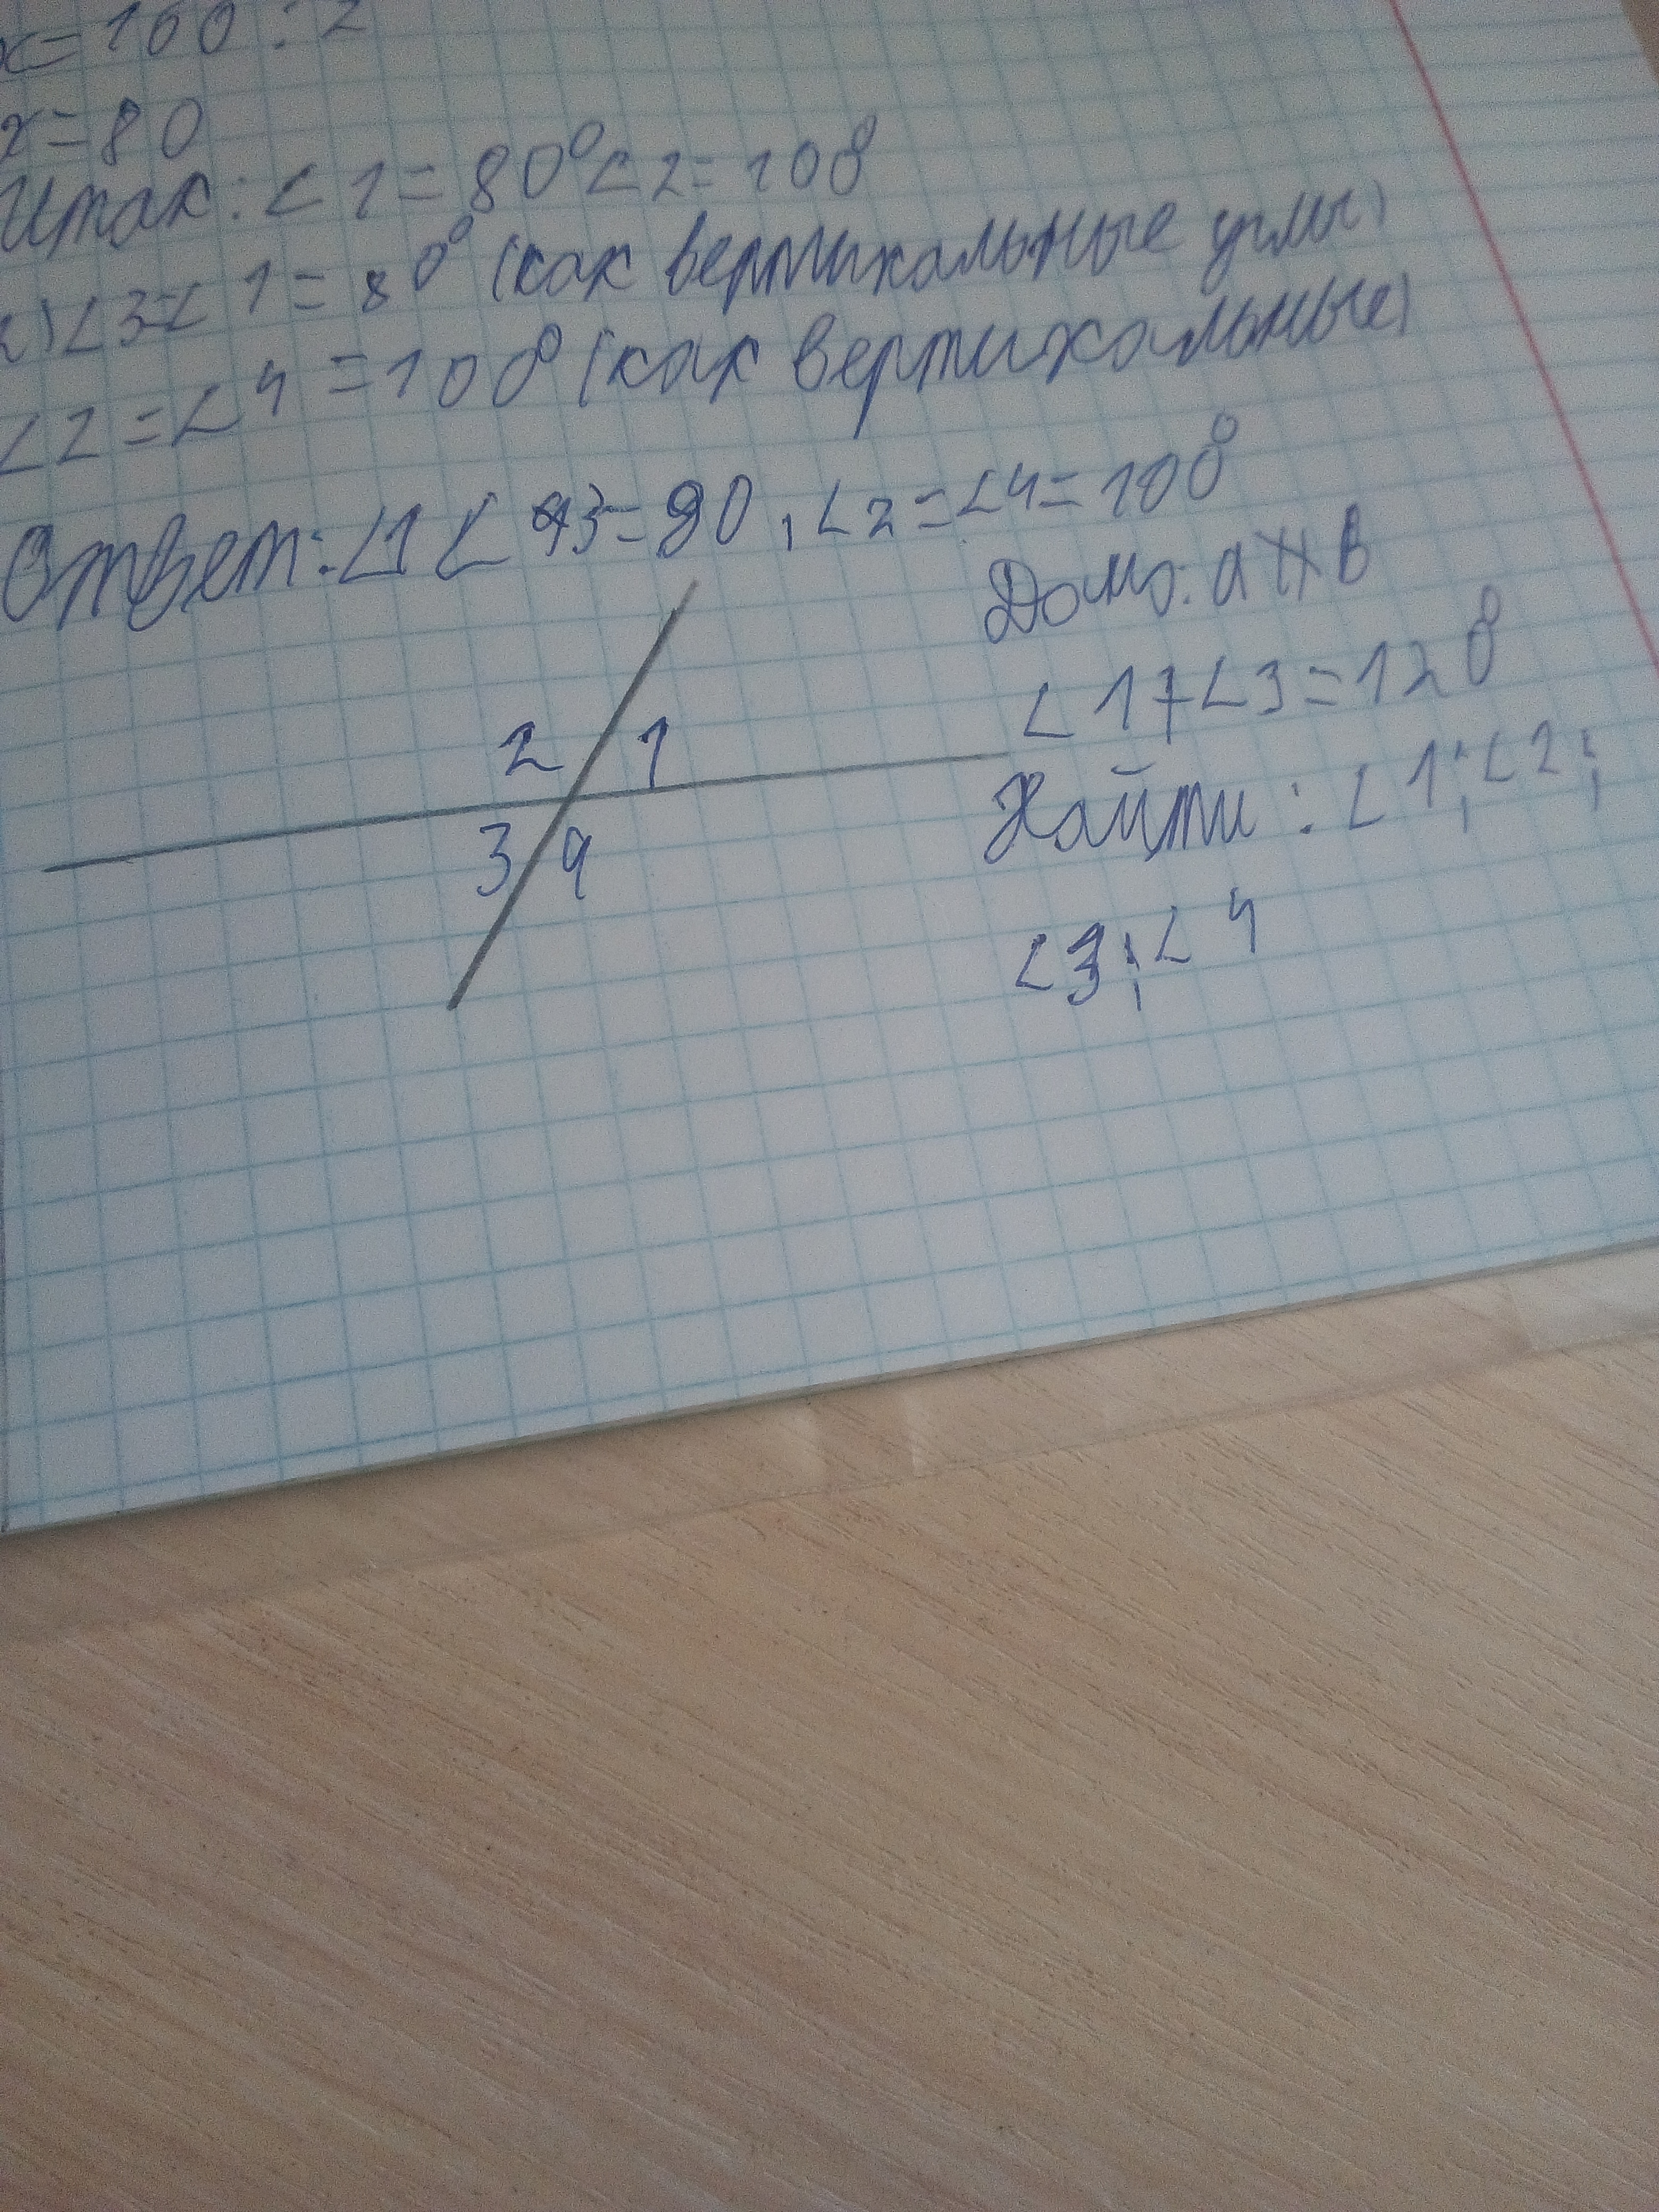 x=160:2
x=80
Итак: ∠1=80° ∠2=100°
2) ∠3=∠1=80° (как вертикальные углы)
∠2=∠4=100° (как вертикальные)
Ответ: ∠1 ∠3=80, ∠2=∠4=100°
Дано: a ∦ b
∠1+∠3=120°
Найти: ∠1; ∠2;
∠3; ∠4
2 1
3 4